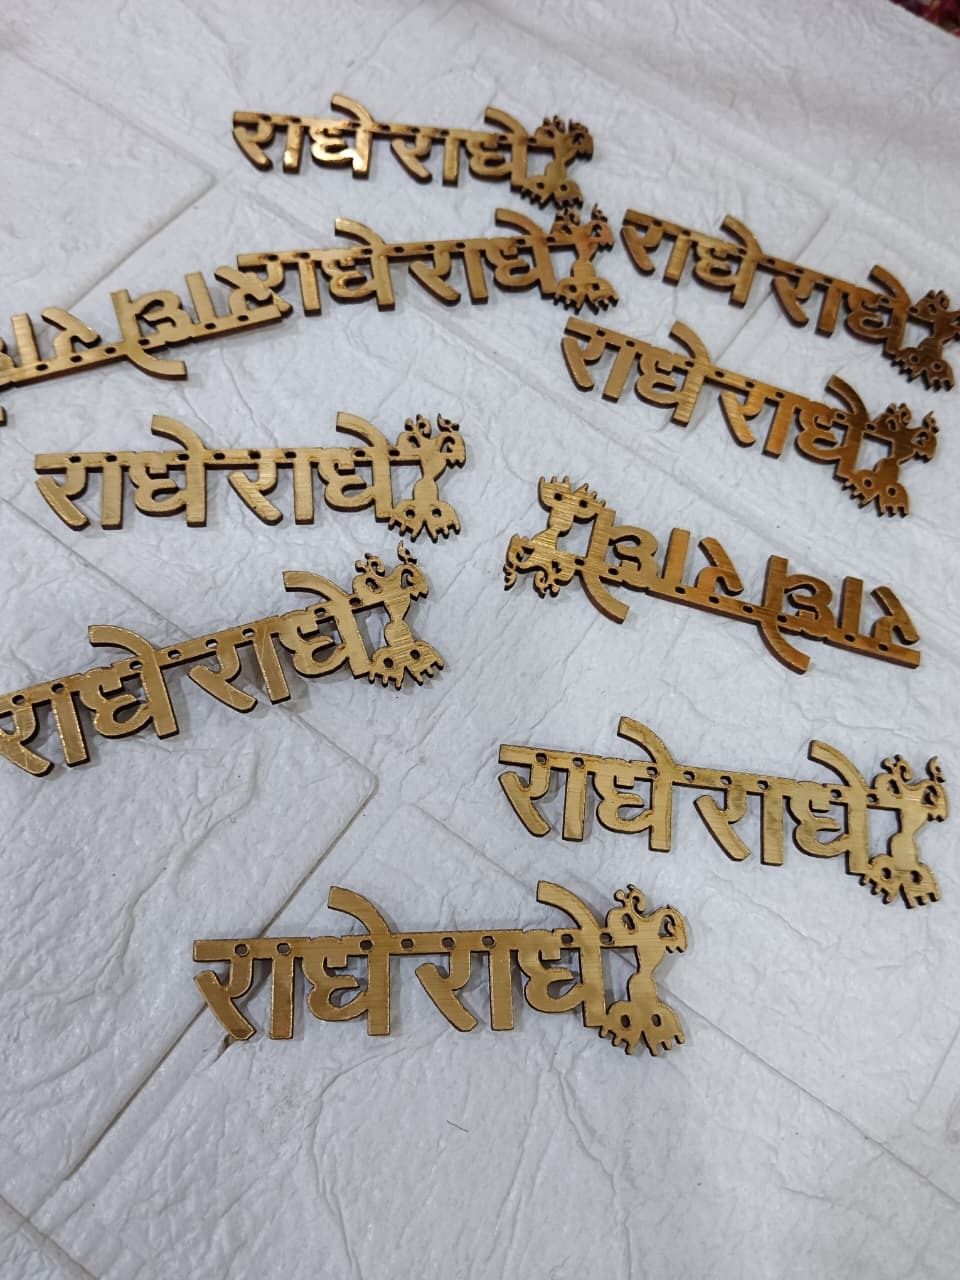 राधे राधे
राधे राधे
राधे राधे
राधे राधे
राधे राधे
राधे राधे
राधे राधे
राधे राधे
राधे राधे
राधे राधे